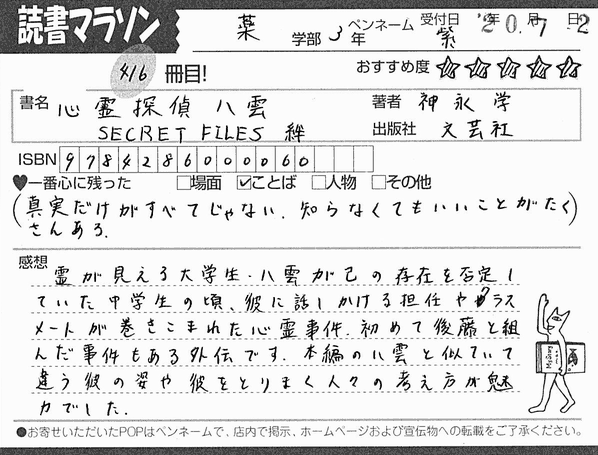 読書マラソン
薬 学部 3年 ペンネーム 紫 受付日 '20.7.2
416 冊目! おすすめ度 ☆☆☆☆☆
書名 心霊探偵八雲 著者 神永学
SECRET FILES 絆 出版社 文芸社
ISBN 9784286000060
♥一番心に残った □場面 ☑ことば □人物 □その他
(真実だけがすべてじゃない。知らなくてもいいことがたく)
さんある。
感想
霊が見える大学生・八雲が己の存在を否定し
ていた中学生の頃、彼に話しかける担任やクラス
メートが巻きこまれた心霊事件。初めて後藤と組
んだ事件もある外伝です。本編の八雲と似ていて
違う彼の姿や彼をとりまく人々の考え方が魅
力でした。
●お寄せいただいたPOPはペンネームで、店内で掲示、ホームページおよび宣伝物への転載をご了承ください。